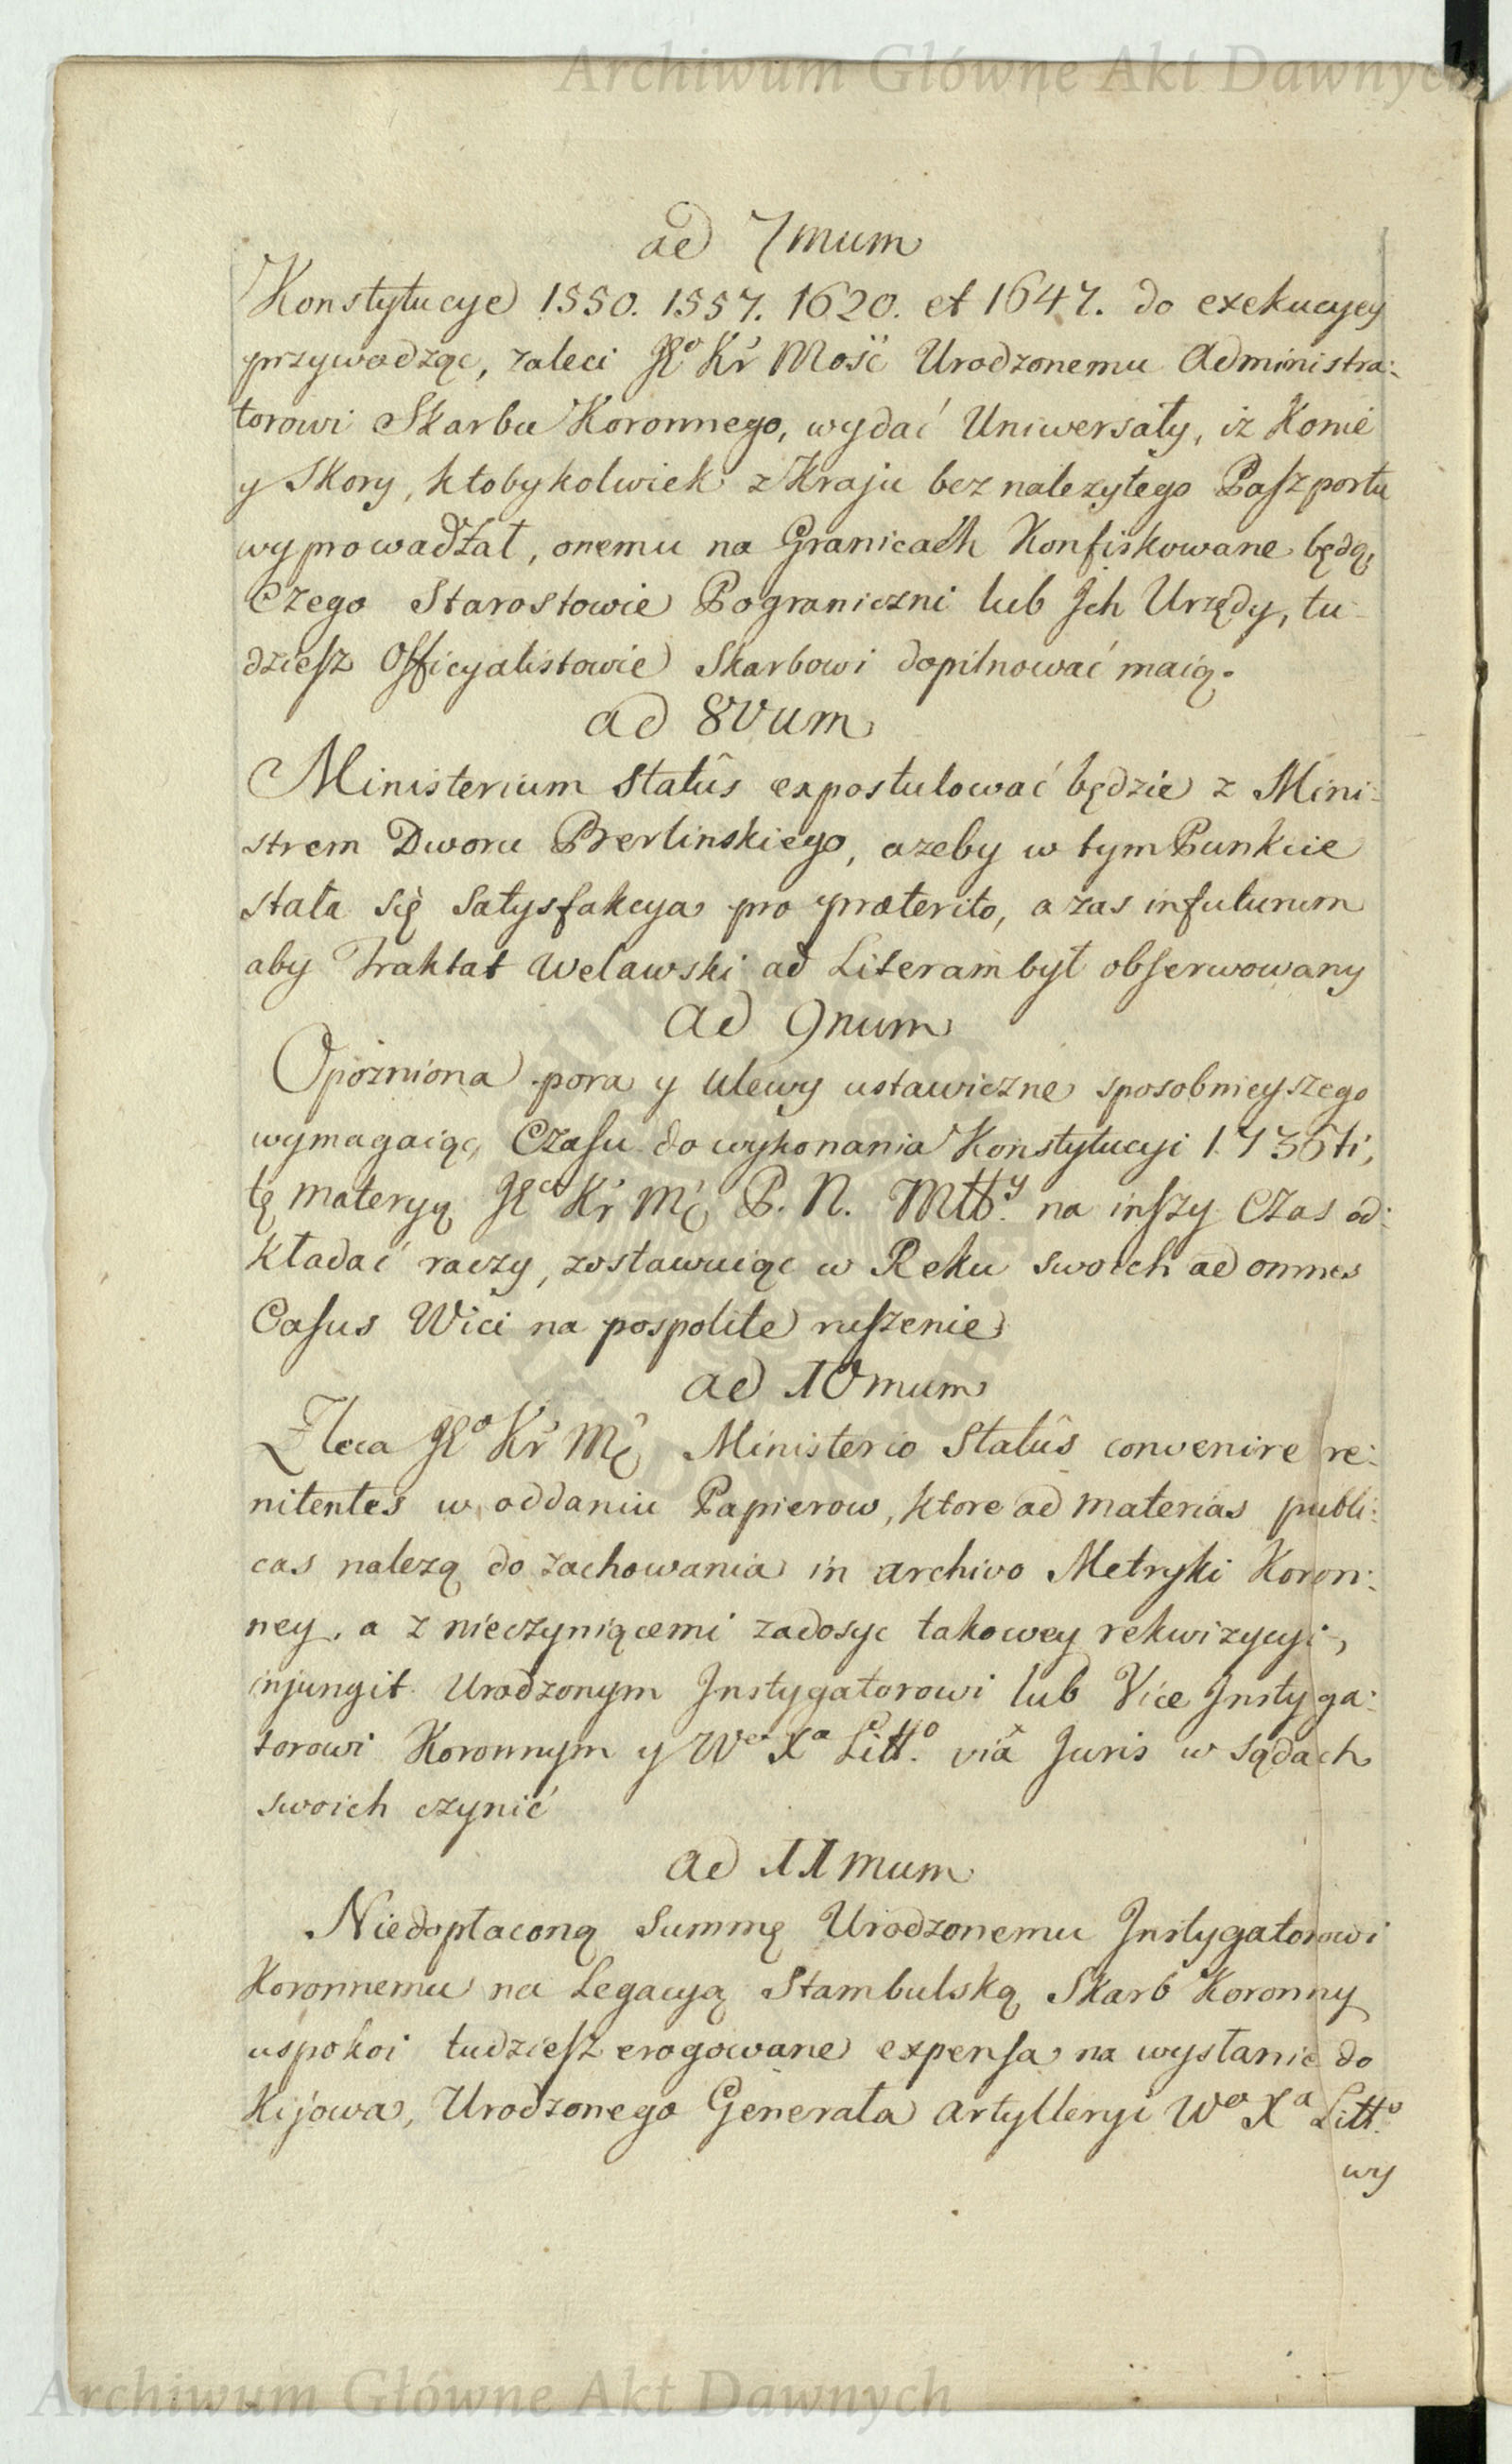 Archiwum Główne Akt Dawnych
ad 7mum
Konstytucye 1550. 1557. 1620. et 1647. do exekucyey
przywodząc, zaleci JKo Kr Mość Urodzonemu Administra:
torowi Skarbu Koronnego, wydać Uniwersały, iż Konie
y Skory, ktobykolwiek z Kraju bez nalezytego Paſzportu
wyprowadzał, onemu na Granicach Konfiskowane będą,
Czego Starostowie Pograniczni lub Jch Urzędy, tu-
dzieſz Officyalistowie Skarbowi dopilnować maią.
ad 8vum
Ministerium Statûs expostulować będzie z Mini:
strem Dworu Berlinskiego, azeby w tym Punkcie
stała się Satysfakcya pro præterito, a zas in futurum
aby Traktat Welawski ad Literam był obſerwowany
ad 9num
Opoźniona pora y Ulewy ustawiczne sposobnieyszego
wymagaiąc, Czaſu do wykonania Konstytucyi 1736ti,
tę materyą Kr Mć P. N. Mttby na inſzy Czas od:
kładać raczy, zostawuiąc w Reku swoich ad omnes
Caſus Wici na pospolite ruſzenie
ad 10mum
Zleca Kr Mć Ministerio Statûs convenire re:
nitentes w oddaniu Papierow, ktore ad materias publi:
cas nalezą do zachowania in archivo Metryki Koron:
ney. a z nieczyniącemi zadosyc takowey rekwizycyi,
injungit Urodzonym Jnstygatorowi lub Vice Jnstyga:
torowi Koronnym y Wo Xa Litto. viâ Juris w sądach
swoich czynić
ad 11mum
Niedopłaconą Summę Urodzonemu Jnstygatorowi
Koronnemu na Legacyą Stambulską Skarb Koronny
uspokoi tudzieſz erogowane expenſa na wysłanie do
Kijowa, Urodzonego Generała Artylleryi Wo Xa Litto
wy
Archiwum Główne Akt Dawnych